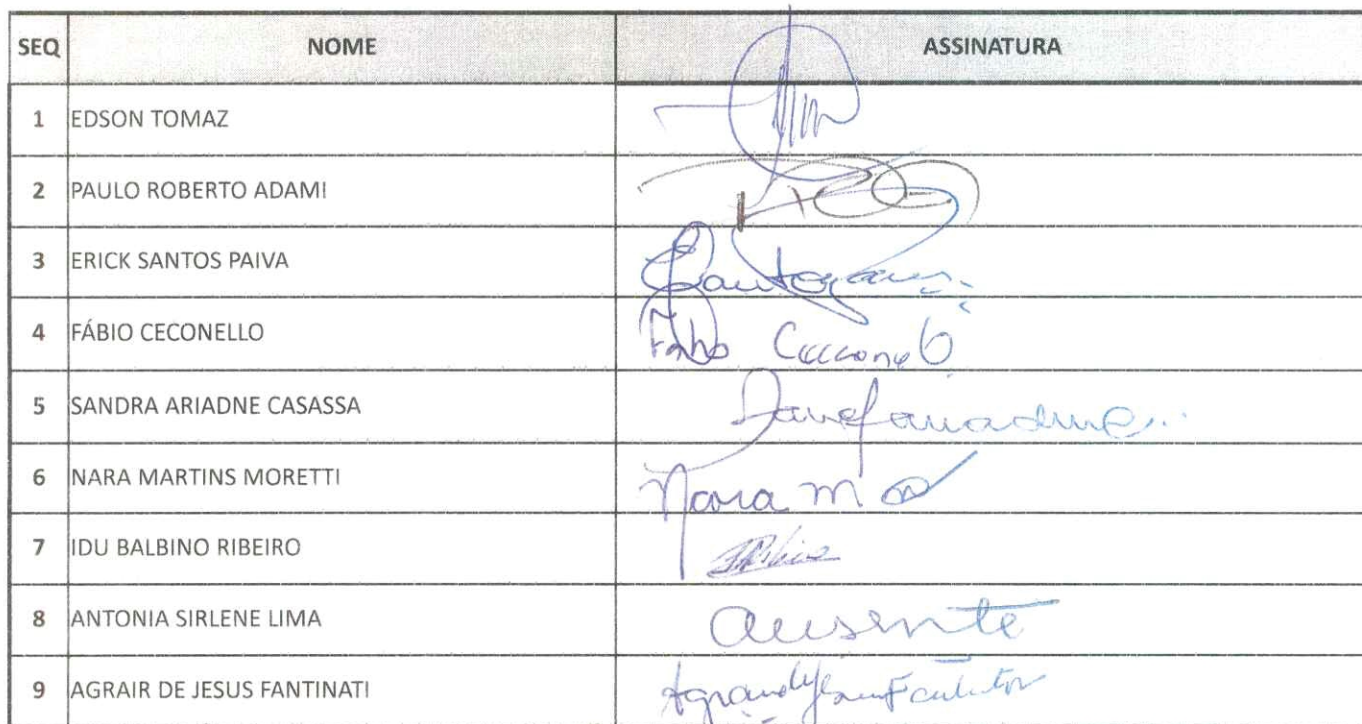 SEQ NOME ASSINATURA
1 EDSON TOMAZ
2 PAULO ROBERTO ADAMI
3 ERICK SANTOS PAIVA
4 FÁBIO CECONELLO Fabio Ceconello
5 SANDRA ARIADNE CASASSA
6 NARA MARTINS MORETTI Nara M
7 IDU BALBINO RIBEIRO
8 ANTONIA SIRLENE LIMA ausente
9 AGRAIR DE JESUS FANTINATI